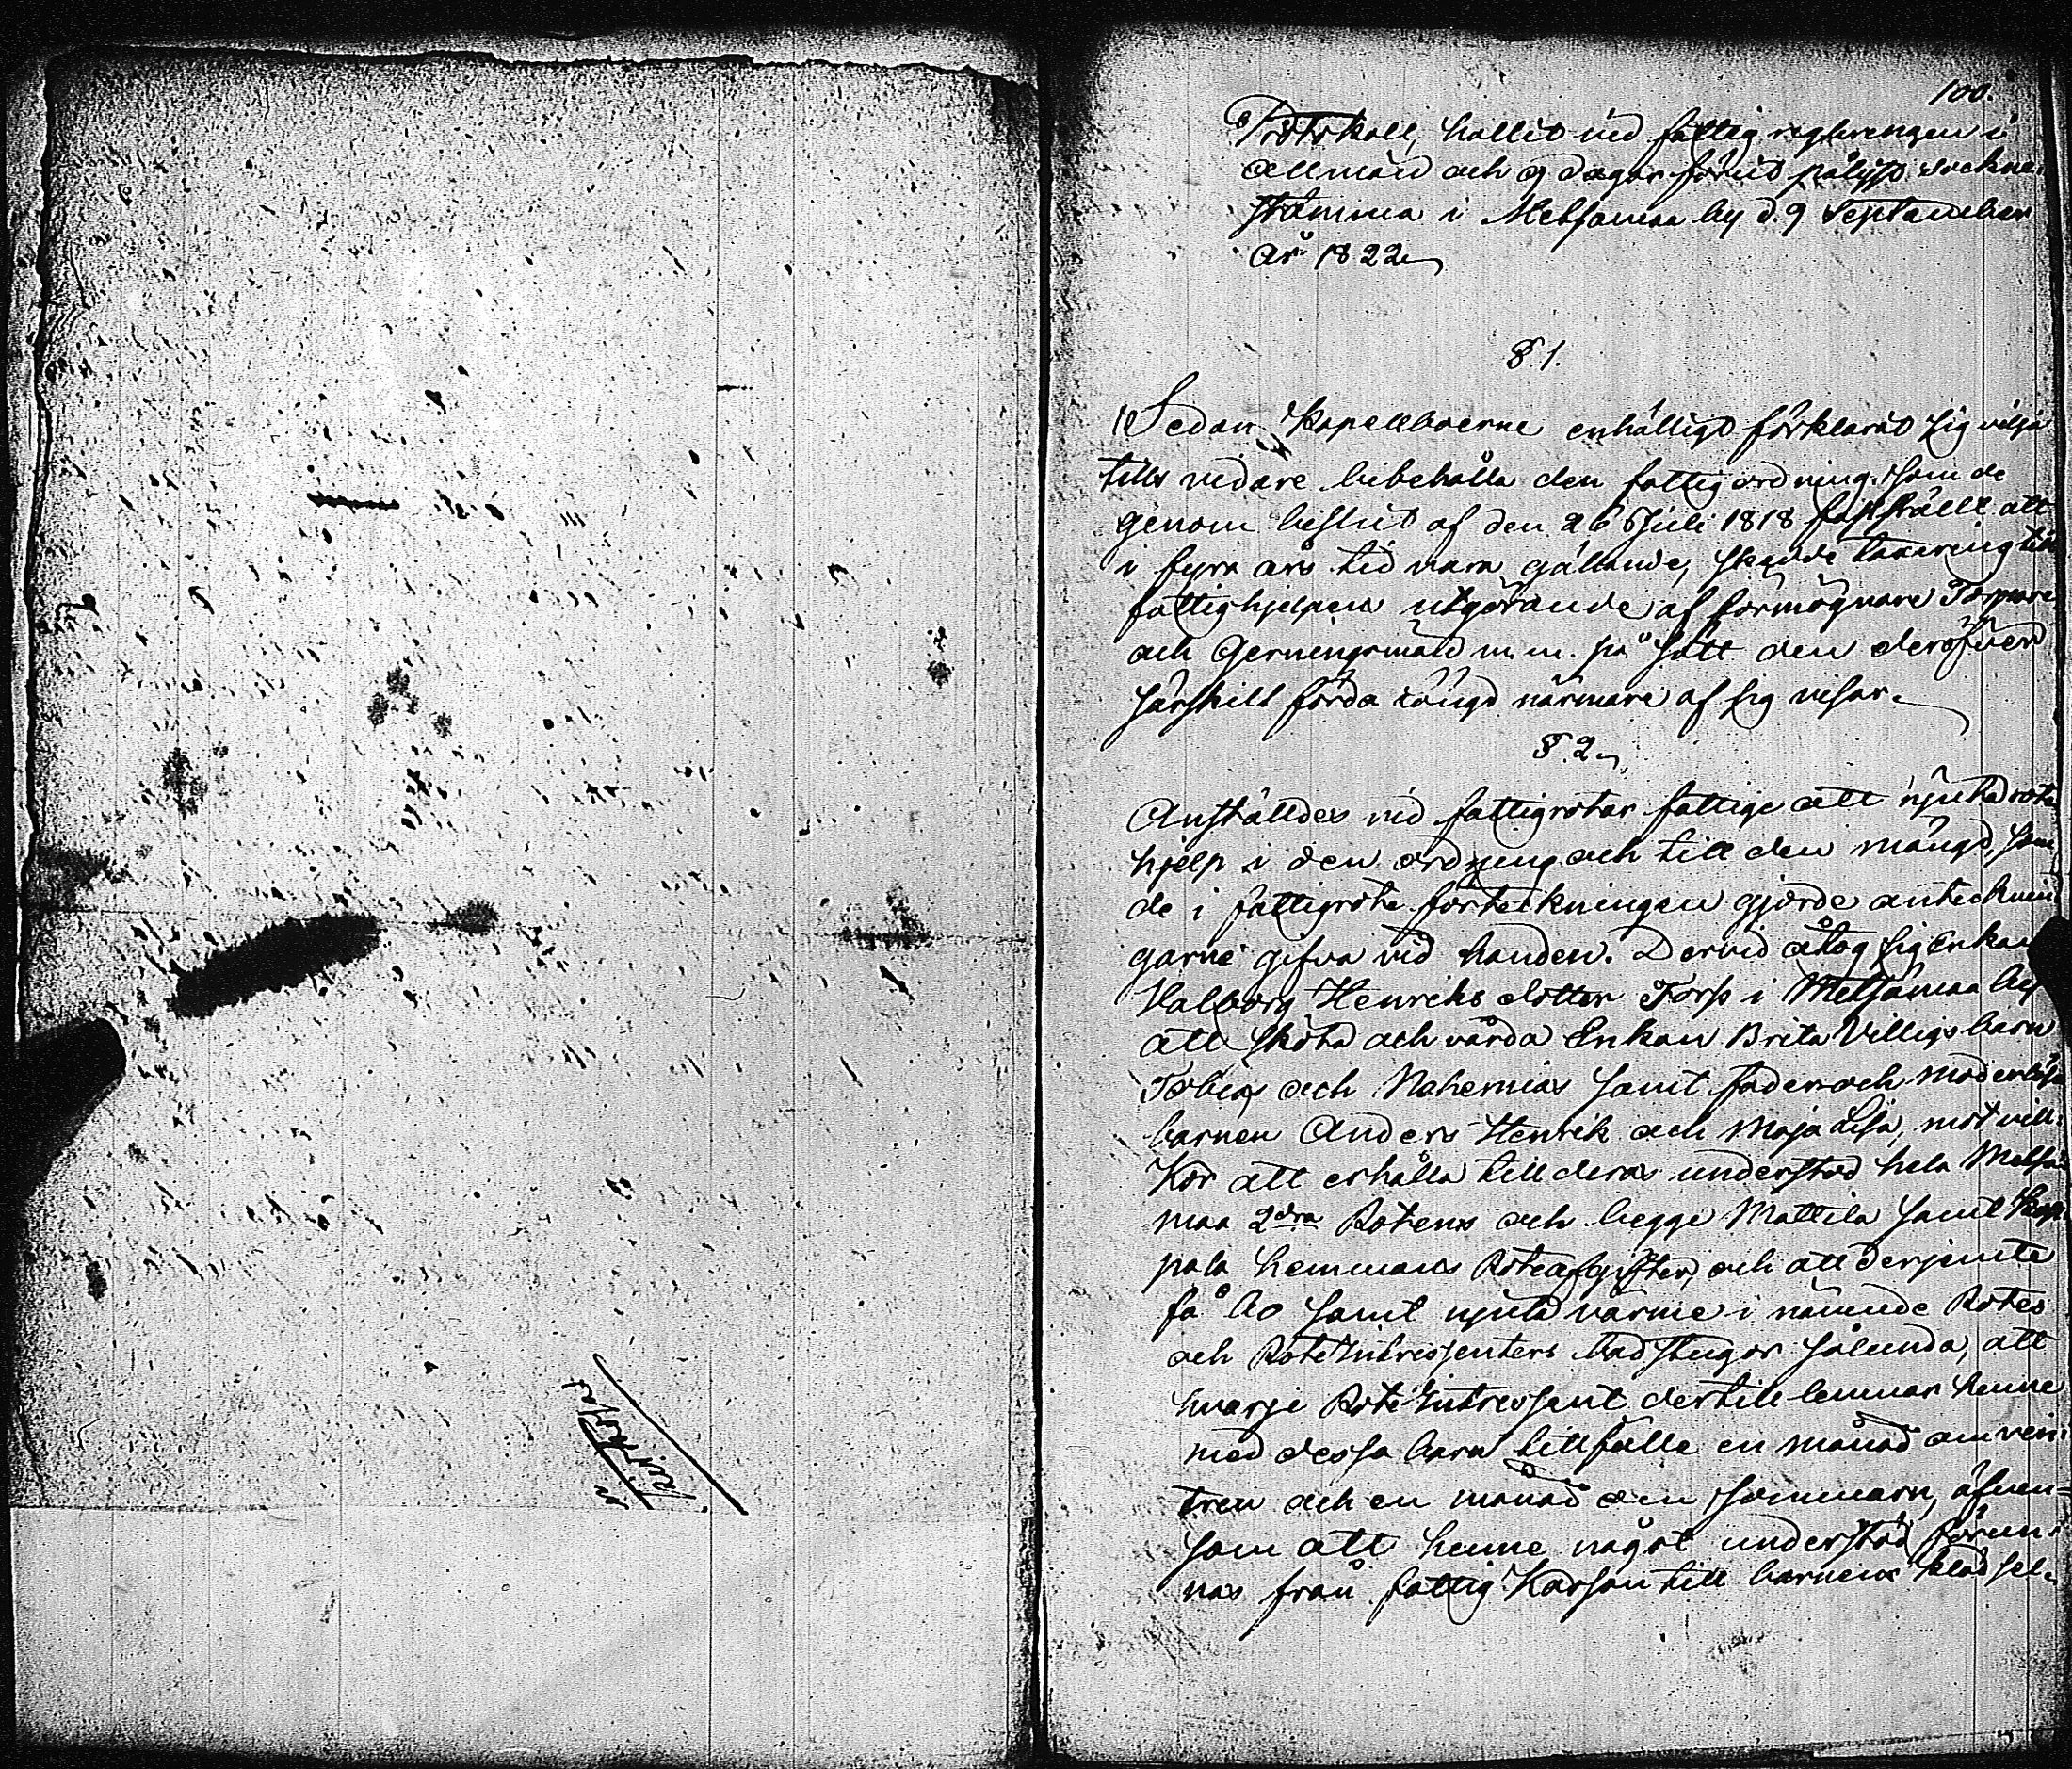 100.
Protokoll, hållit vid fattig regleringen i
allmän och 9 dagar förut pålyst Sockne-
stämma i Metsämaa by d. 9 September
år 1822
§. 1.
Sedan Kapellboerne enhälligt förklarat sig vilja
tills vidare bibehålla den fattigordning, som de
genom beslut af den 26 Julii 1818 fastställt att
i fyra års tid vara gällande, skedde taxering till
fattighjelpens utgörande af förmögnare Torpare
och Gerningsmän m. m. på sätt den deröfver
särskilt förda längd närmare af sig visar.
§. 2.
Anställdes vid fattigrotar fattige att njuta rote
hjelp i den ordning och till den mängd, som
de i fattigrote förteckningen gjorde anteckni
garne gifva vid handen. Dervid åtog sig Enkan
Valborg Henriks dotter Torp i Metsämaa by
att sköta och vårda Enkan Brita Villigs barn
Tobias och Nehemias samt fader och moderlösa
barnen Anders Henrik och Maja Lisa, mot vill-
kor att erhålla till deras understöd hela Metsä-
maa 2dra Rotens och begge Mattila samt
pala hemmans Roteafgifter, och att derjemte
få bo samt njuta värme i nämnde Rotes
och Rote Intressenters badstugor sålunda, att
hvarje Rote Intressent dertill lemnar henne
med dessa barn tillfälle en månad om vin-
tren och en månad om sommarn, äfven-
som att henne något understöd förun-
nas från fattig Kassan till barnens klädsel.